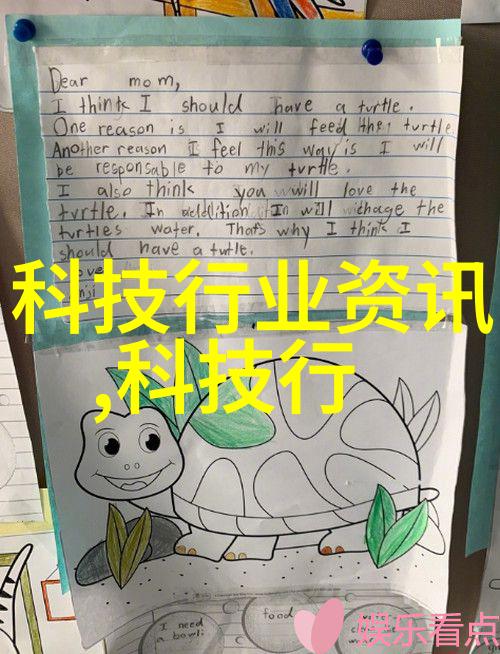 Dear mom,
I think I should have a turtle.
One reason is I will feed the turtle.
Another reason I feel this way is I will
be responsable to my turtle.
I also think you will love the
turtle. In addition I will chage the
turtles water. Thats why I think I
should have a turtle.
love
科技行业资讯
,科技行
I need
a bowl
food
娱乐看点